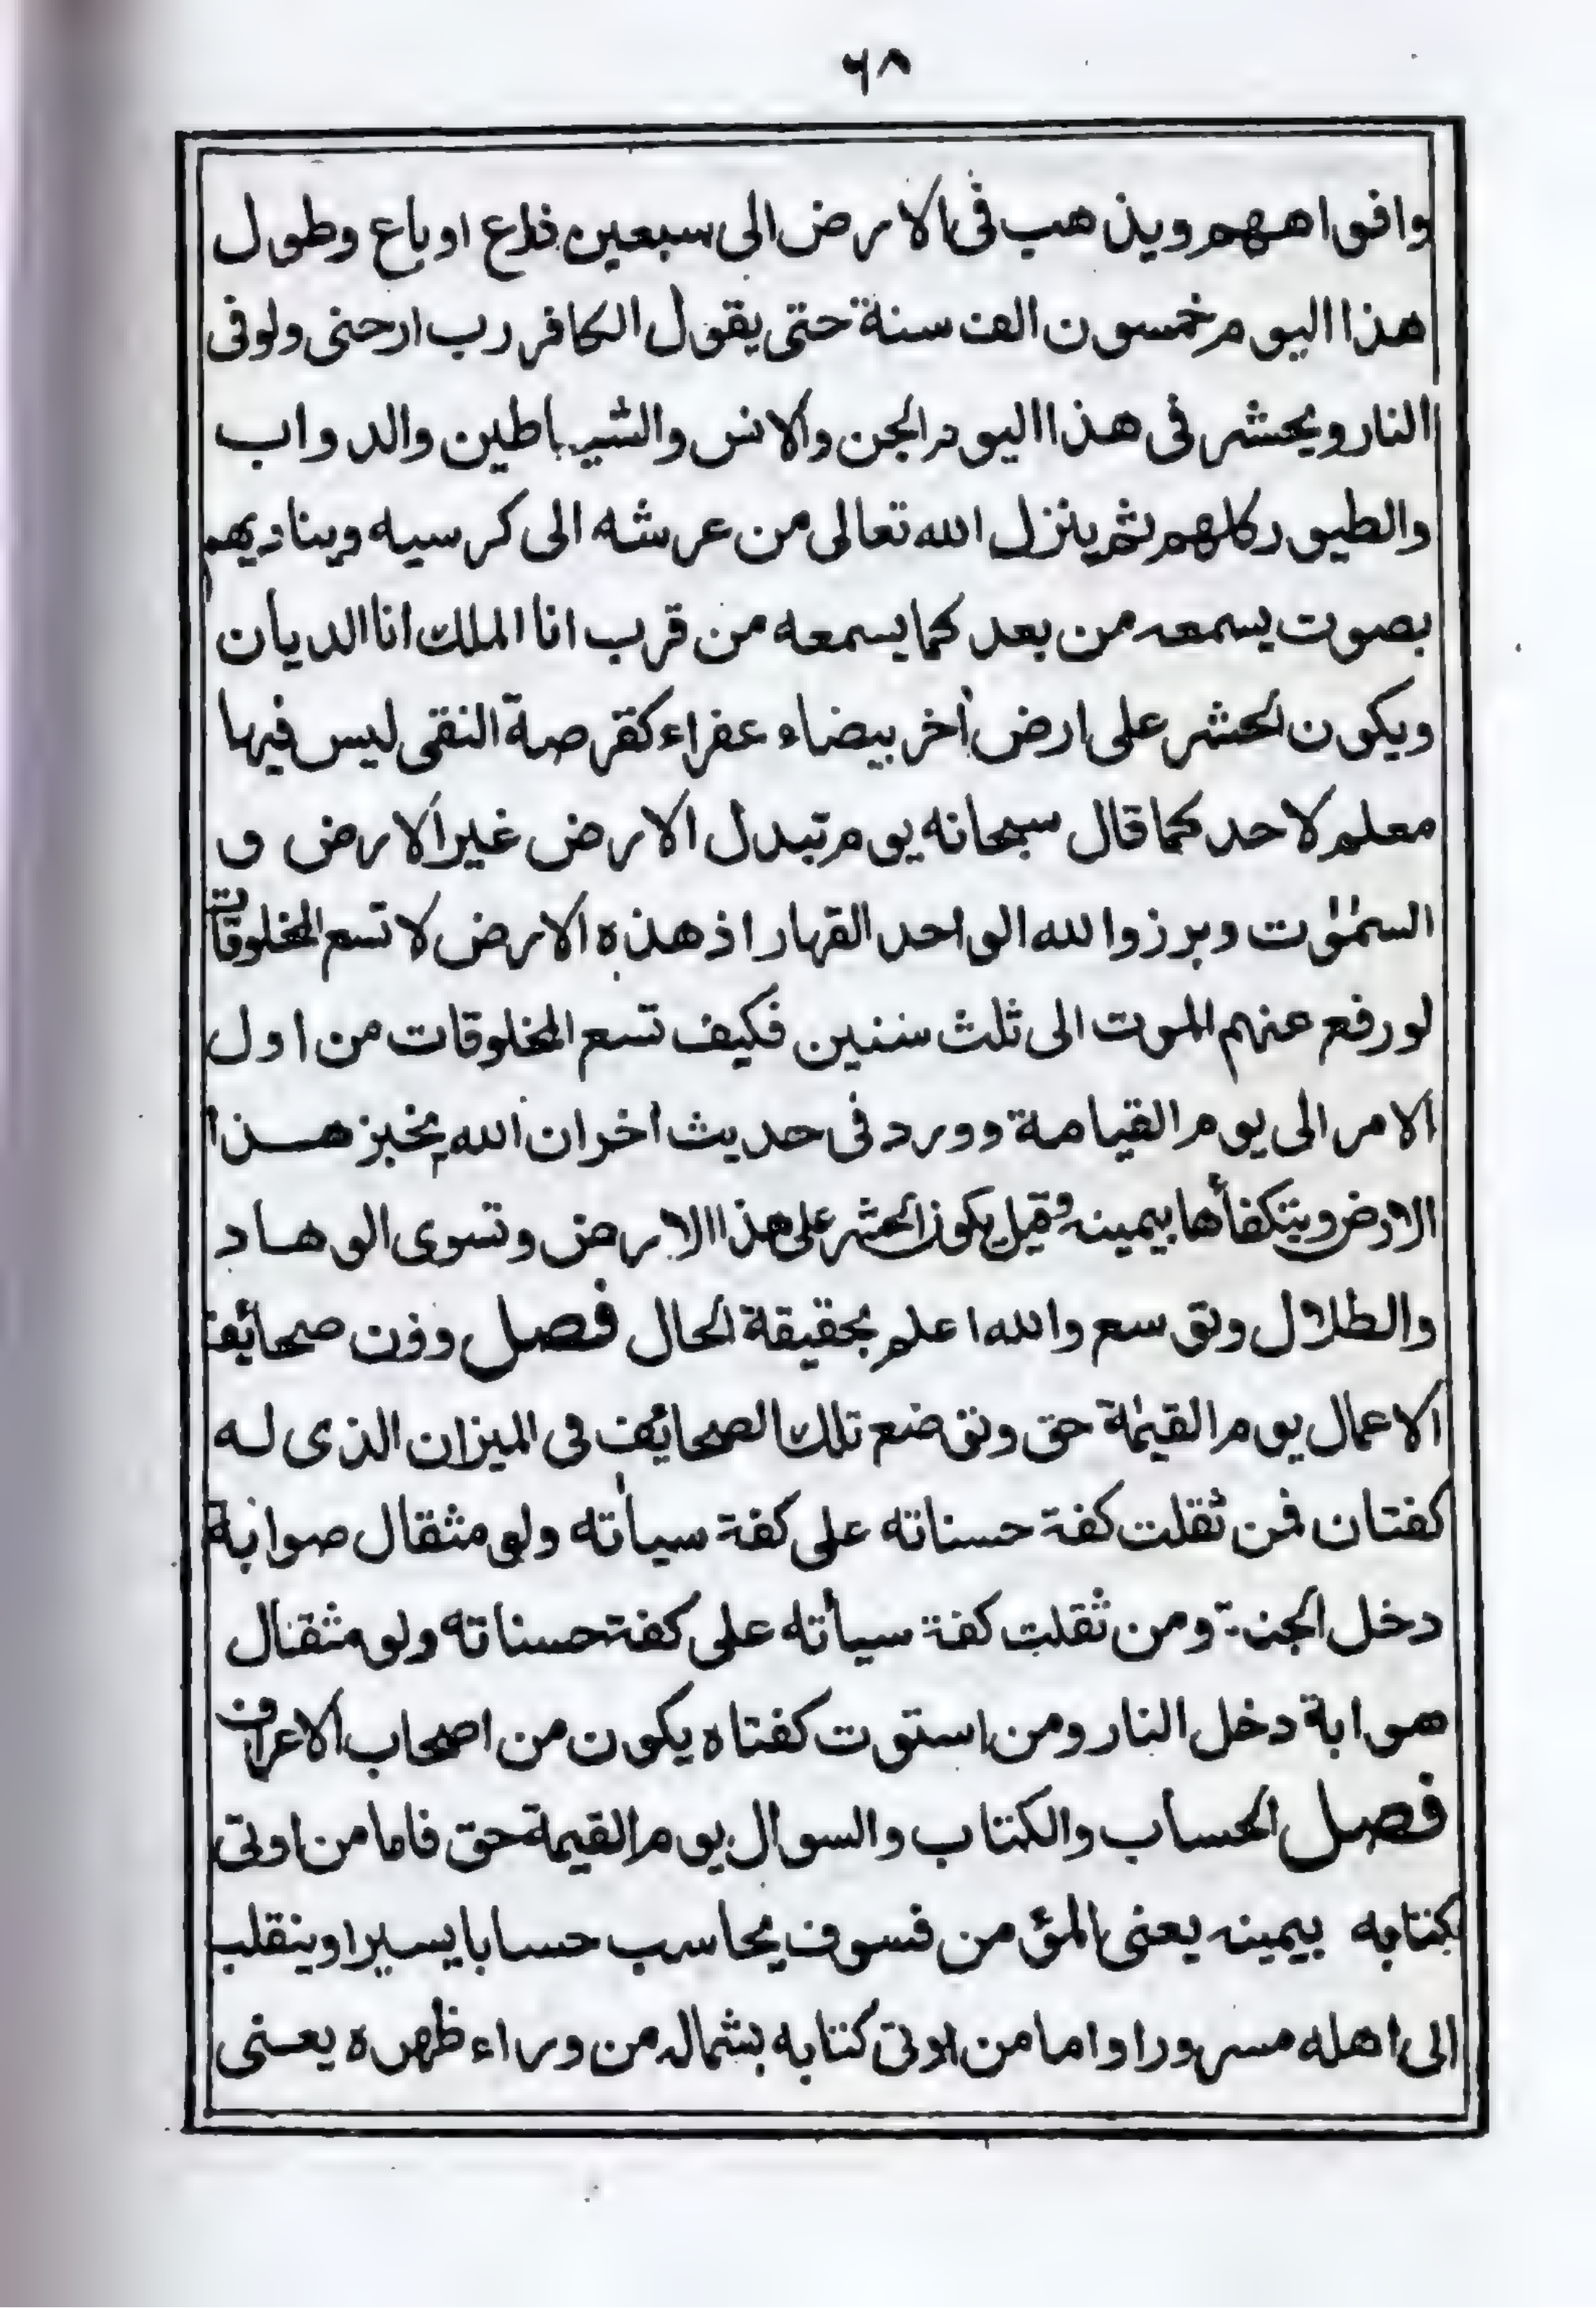 ٦٨
وافواههم ويذهب فى الارض الى سبعين ذراع اوباع وطول
هذا اليوم خمسون الف سنة حتى يقول الكافر رب ارحنى ولوفى
النار ويحشر فى هذا اليوم الجن والانس والشياطين والدواب
والطيور كلهم ثم ينزل الله تعالى من عرشه الى كرسيه ويناديهم
بصوت يسمعه من بعد كما يسمعه من قرب انا الملك انا الديان
ويكون الحشر على ارض أخر بيضاء عفراء كقرصة النقى ليس فيها
معلم لاحد كما قال سبحانه يوم تبدل الارض غير الارض و
السمٰوٰت وبرزوا لله الواحد القهار اذ هذه الارض لا تسع المخلوقات
لو رفع عنهم الموت الى ثلث سنين فكيف تسع المخلوقات من اول
الامر الى يوم القيامة وورد فى حديث اخر ان الله يخبز هذا
الارض ويتكفأها بيمينه وقيل يكون الحشر على هذا الارض وتسوى الوهاد
والطلال وتوسع والله اعلم بحقيقة الحال فصل ووزن صحائف
الاعمال يوم القيمٰة حق وتوضع تلك الصحائف فى الميزان الذى له
كفتان فمن ثقلت كفة حسناته على كفة سيأته ولو مثقال صوابة
دخل الجنة ومن ثقلت كفة سيأته على كفة حسناته ولو مثقال
صوابة دخل النار ومن استوت كفتاه يكون من اصحاب الاعراف
فصل الحساب والكتاب والسوال يوم القيمة حق فاما من اوتى
كتابه بيمينه يعنى المؤمن فسوف يحاسب حسابا يسيرا وينقلب
الى اهله مسرورا واما من اوتى كتابه بشماله من وراء ظهره يعنى